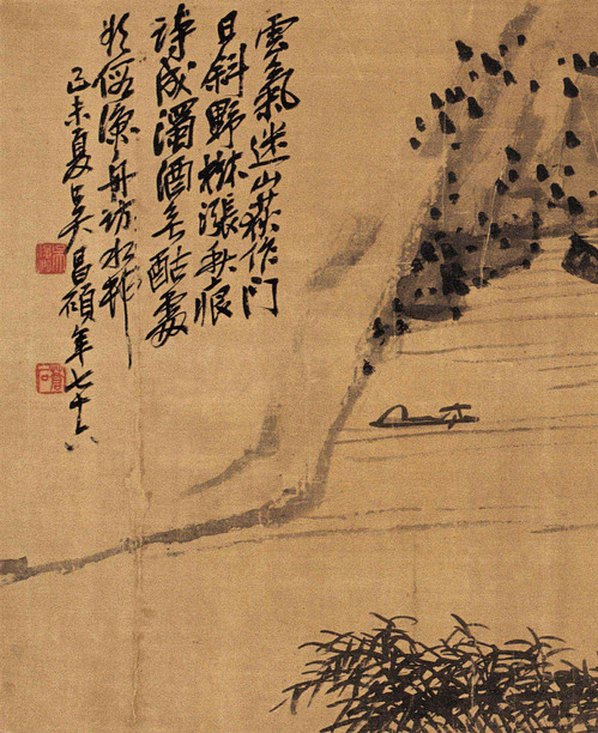 雲氣迷山荻作门
日斜野樹漲秋痕
詩成濁酒无酤處
漁舟訪水邨
己未夏吳昌碩年七十六